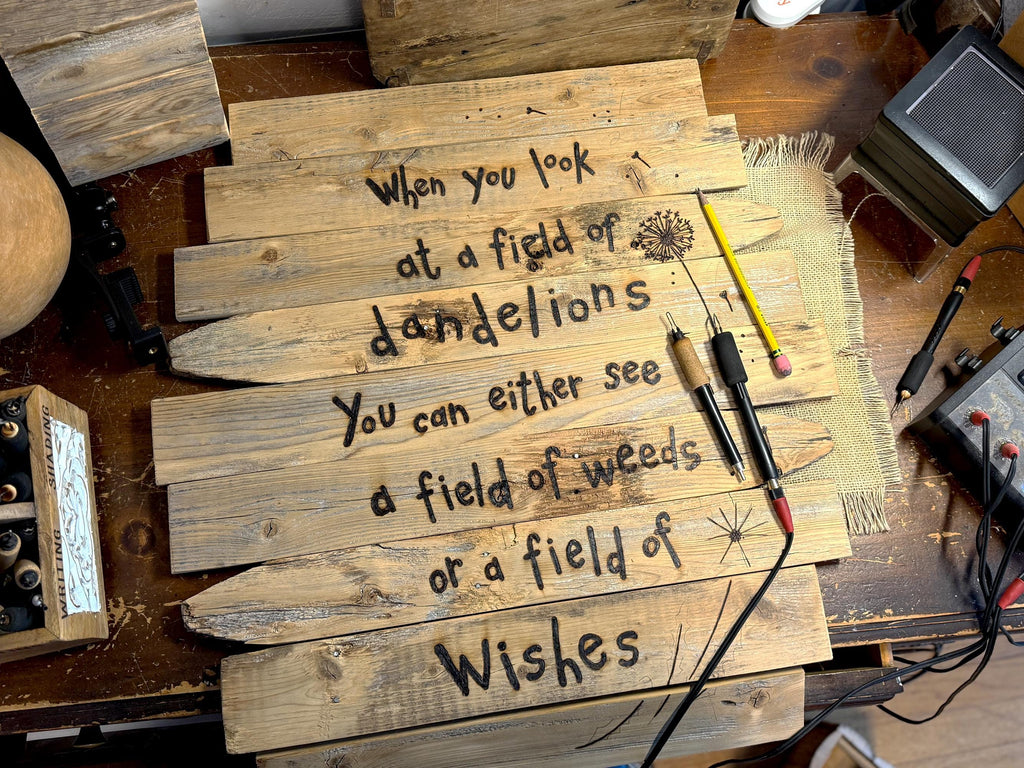 When you look
at a field of
dandelions
You can either see
a field of weeds
or a field of
Wishes
WRITING
SHADING